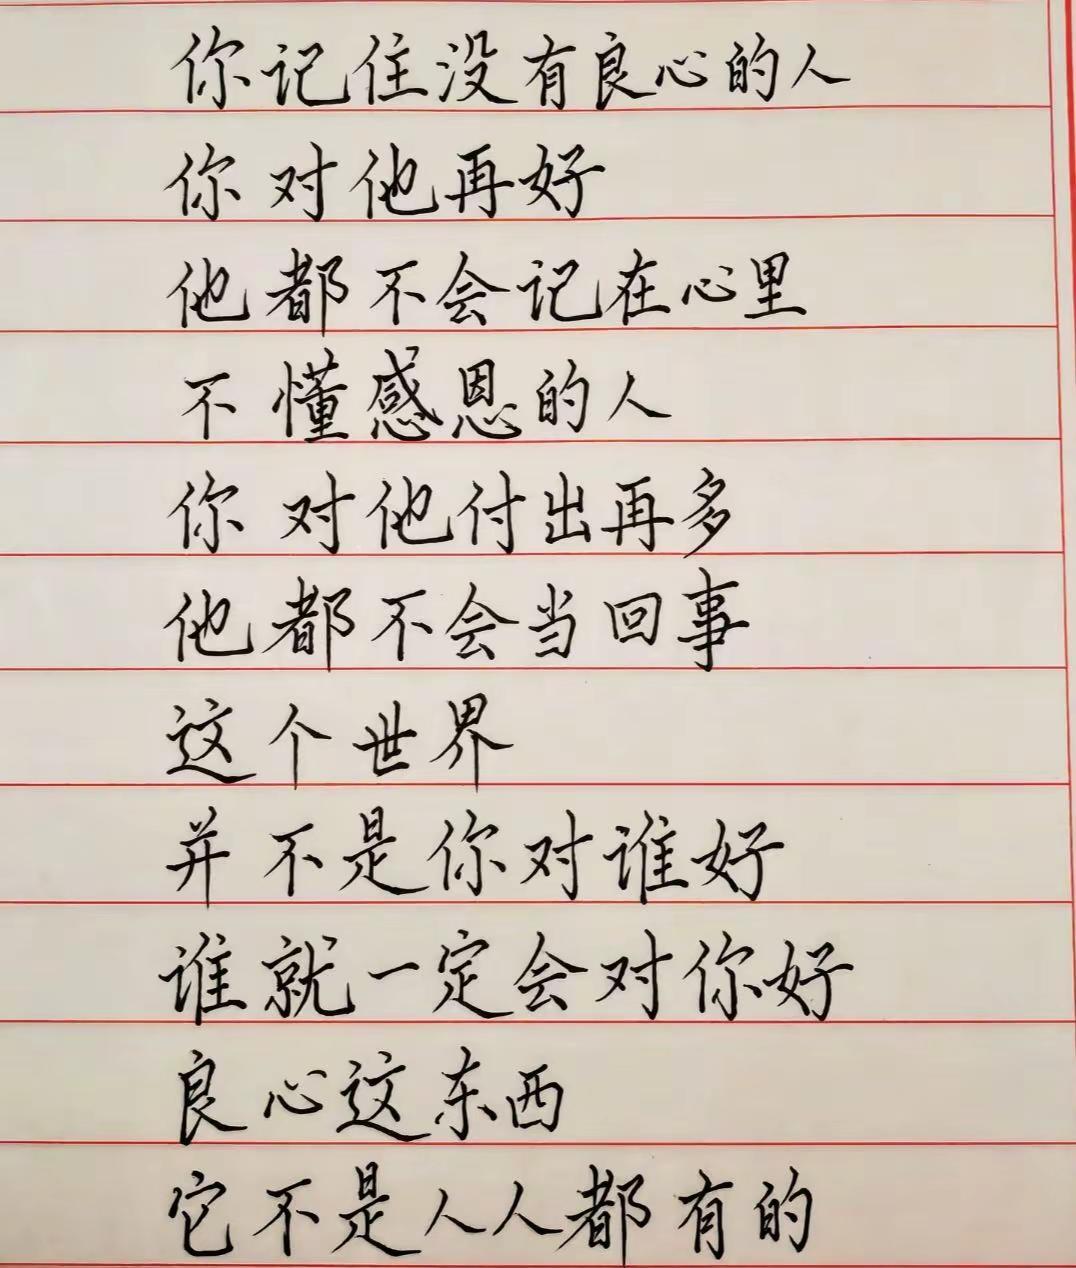 你记住没有良心的人
你对他再好
他都不会记在心里
不懂感恩的人
你对他付出再多
他都不会当回事
这个世界
并不是你对谁好
谁就一定会对你好
良心这东西
它不是人人都有的